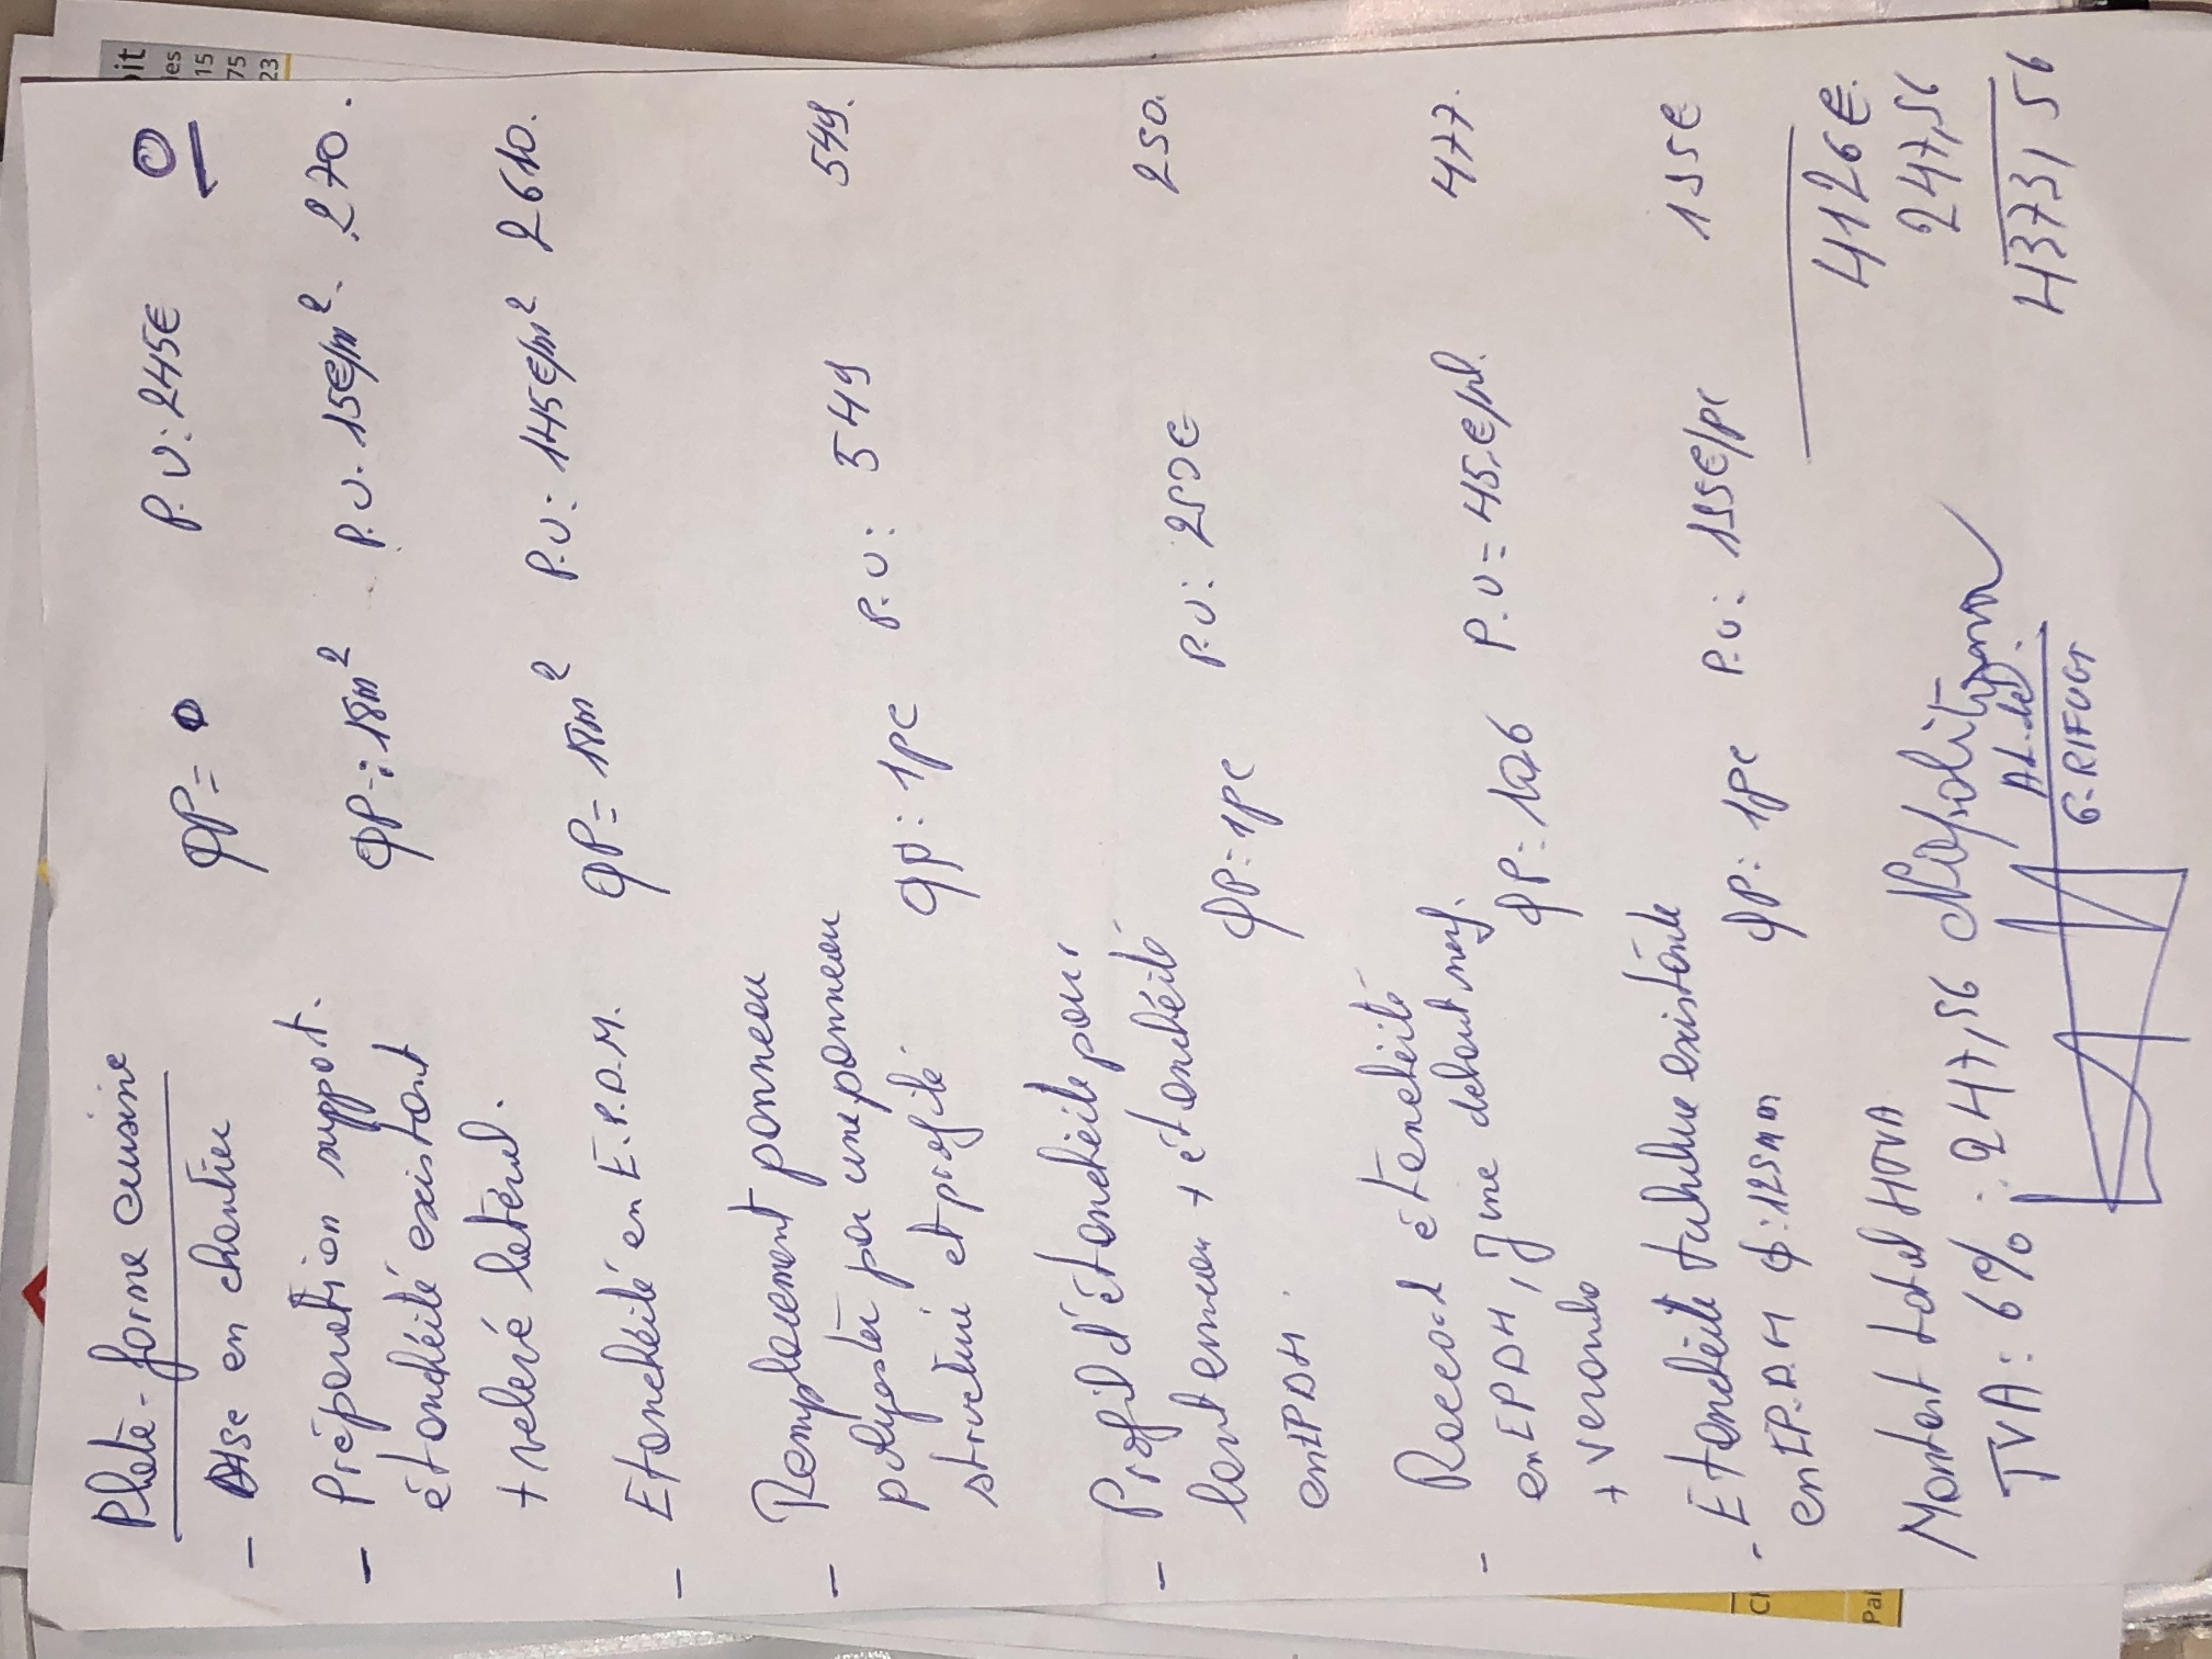 Plate-forme cuisine
- Mise en chantier QP= 0 P.U: 245€ 0
- Préparation support.
étanchéité existant QP=: 18m² P.U. 15€/m². 270.
+ relevé latéral.
- Etanchéité en E.P.D.M. QP= 18m² P.U: 145€/m² 2610.
- Remplacement panneau
polyester par une panneau
structuré et profité QP: 1pc P.U: 549 549.
- Profil d'étanchéité pour
lanterneau + étanchéité
en EPDM. QP=1pc P.U: 250€ 250.
- Raccord étanchéité
en EPDM, zinc debout neuf. P.U= 45,€/ml. 477.
+ veranda
- Etanchéité tubulure existante
en EP.D.M ϕ:125mm QP: 1pc P.U: 155€/pc 155€
4126€
Montant total HTVA
TVA: 6% : 247,56 247,56
4373,56
G-RIFUGT
it
es
15
75
23
Pai